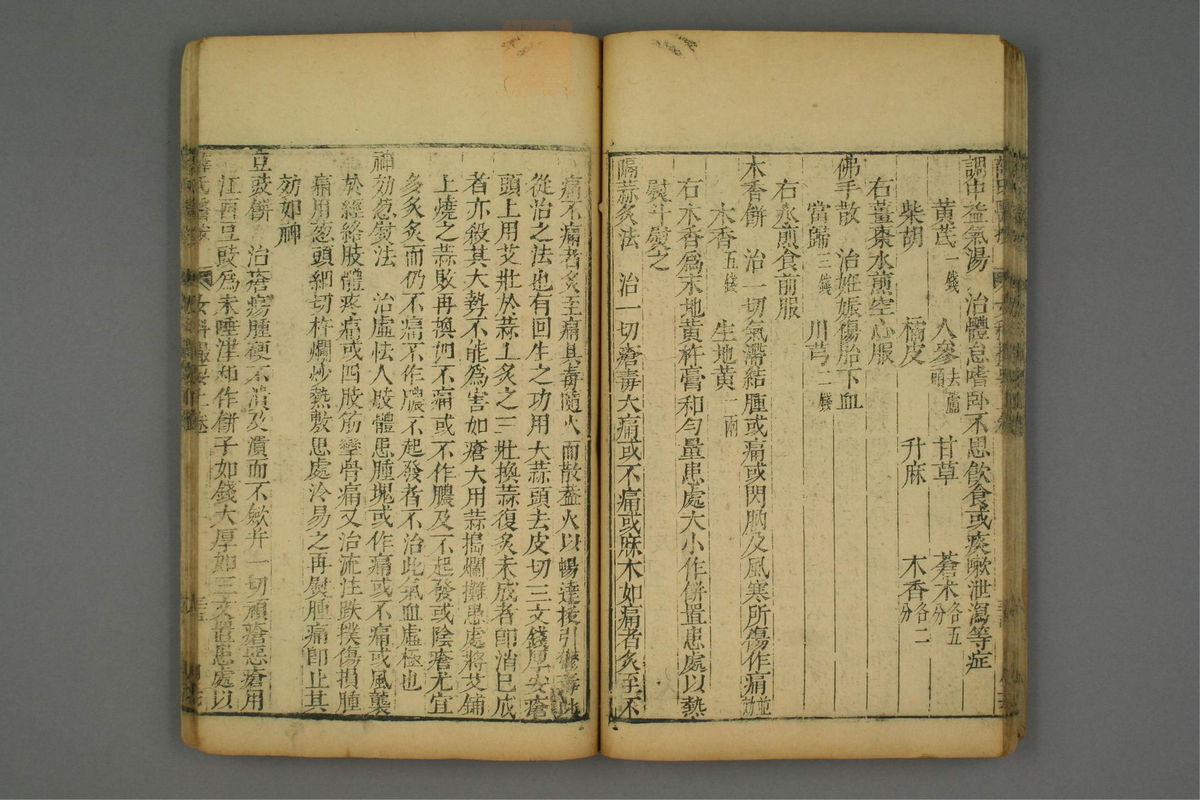 調中益氣湯　治體怠嗜卧不思飲食或痰嗽泄瀉等症
黃芪一錢　人參去蘆頭　甘草　蒼朮各五分
柴胡　橘皮　升麻　木香各二分
右薑棗水煎空心服
佛手散　治妊娠傷胎下血
當歸三錢　川芎二錢
右水煎食前服
木香餅　治一切氣滯結腫或痛或閃肭及風寒所傷作痛並効
木香五錢　生地黃一兩
右木香爲末地黃杵膏和勻量患處大小作餅置患處以熱
熨斗熨之
隔蒜灸法　治一切瘡毒大痛或不痛或麻木如痛者灸至不
痛不痛者灸至痛其毒隨火而散蓋火以暢達拔引鬱毒此
從治之法也有回生之功用大蒜頭去皮切三文錢厚安瘡
頭上用艾壯於蒜上灸之三壯換蒜復灸未成者卽消已成
者亦殺其大勢不能爲害如瘡大用蒜搗爛攤患處將艾鋪
上燒之蒜敗再換如不痛或不作膿及不起發或陰瘡尤宜
多灸灸而仍不痛不作膿不起發者不治此氣血虛極也
神効葱熨法　治虛怯人肢體患腫塊或作痛或不痛或風襲
於經絡肢體疼痛或四肢筋攣骨痛又治流注跌撲傷損腫
痛用葱頭細切杵爛炒熱敷患處冷易之再熨腫痛卽止其
効如神
豆豉餅　治瘡瘍腫硬不潰及潰而不歛并一切頑瘡惡瘡用
江西豆豉爲末唾津和作餅子如錢大厚如三文置患處以
薛氏醫按　女科撮要上卷